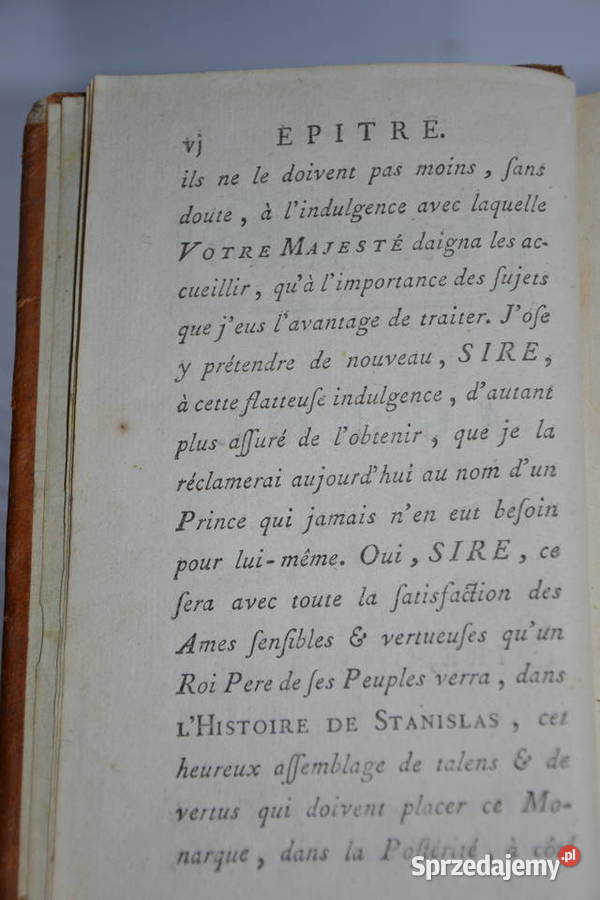 vj EPITRE.
ils ne le doivent pas moins, ſans
doute, à l'indulgence avec laquelle
VOTRE MAJESTÉ daigna les ac-
cueillir, qu'à l'importance des ſujets
que j'eus l'avantage de traiter. J'oſe
y prétendre de nouveau, SIRE,
à cette flatteuſe indulgence, d'autant
plus aſſuré de l'obtenir, que je la
réclamerai aujourd'hui au nom d'un
Prince qui jamais n'en eut beſoin
pour lui-même. Oui, SIRE, ce
ſera avec toute la ſatisfaction des
Ames ſenſibles & vertueuſes qu'un
Roi Pere de ſes Peuples verra, dans
L'HISTOIRE DE STANISLAS, cet
heureux aſſemblage de talens & de
vertus qui doivent placer ce Mo-
narque, dans la Poſtérité, à côté
Sprzedajemy.pl